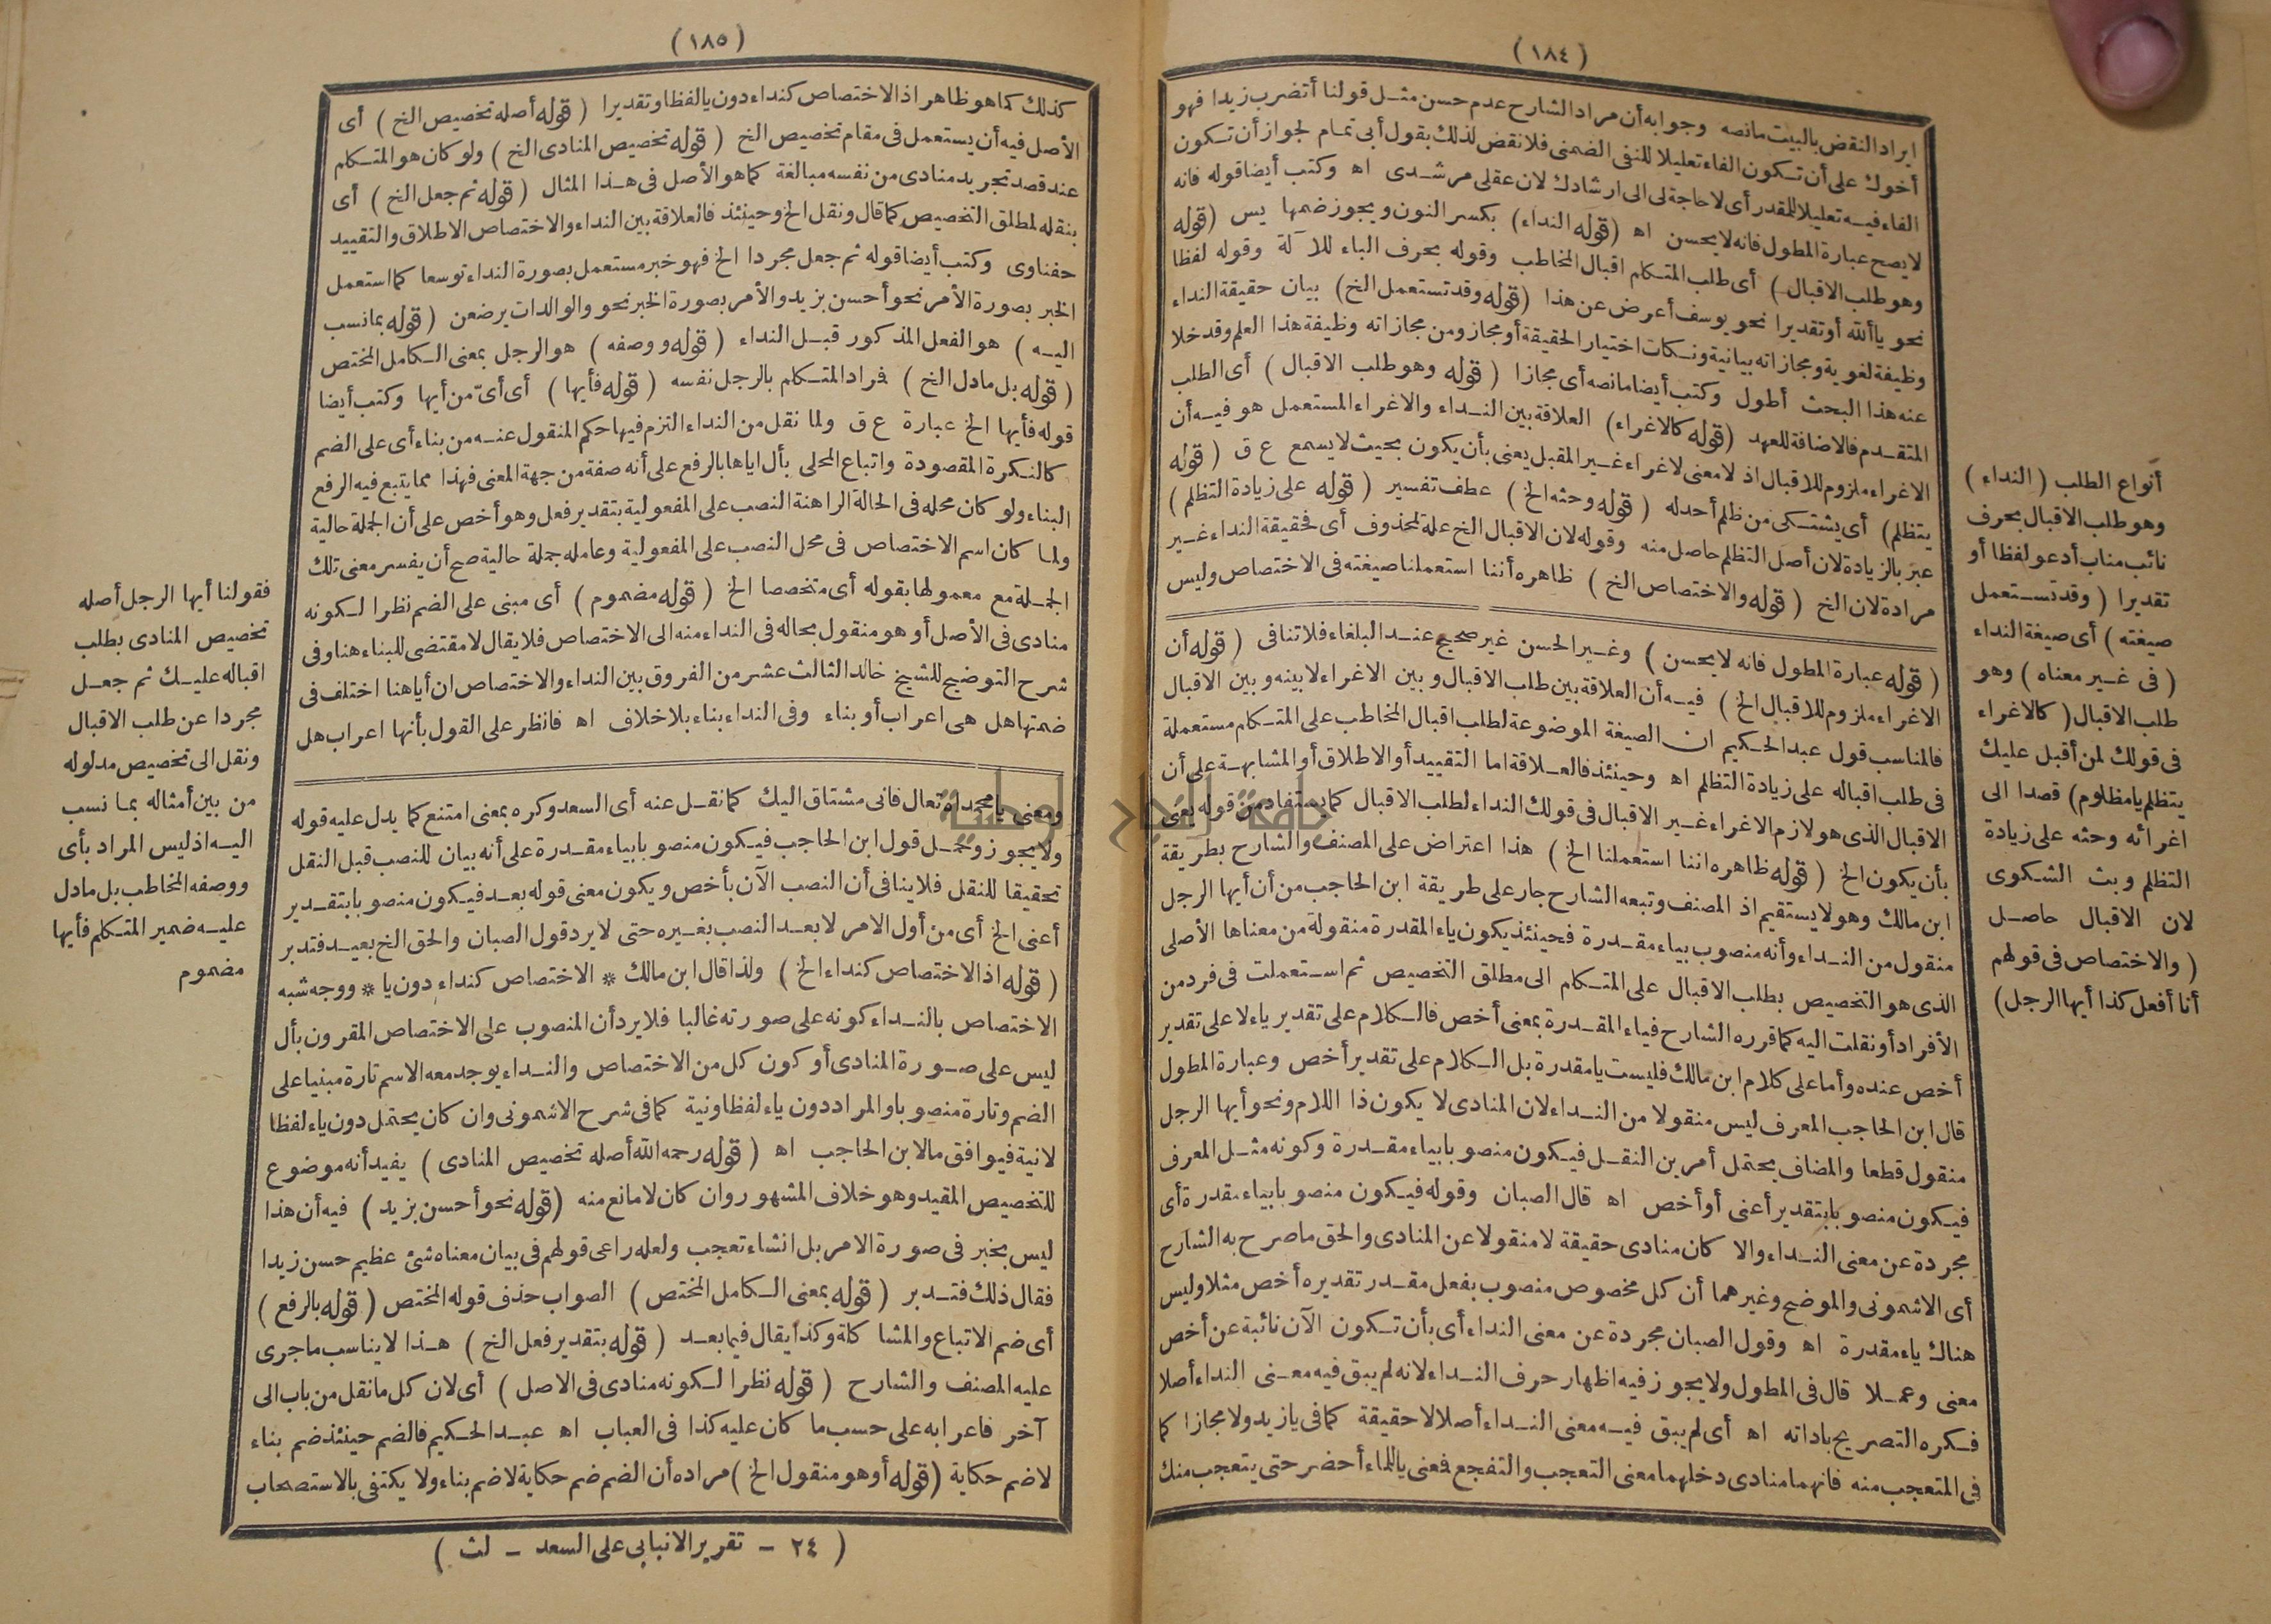 ( ١٨٤ )
ايراد النقض بالبيت مانصه وجوابه أن مراد الشارح عدم حسن مثل قولنا أتضرب زيدا فهو
أخوك على أن تكون الفاء تعليلا للنفى الضمنى فلا نقض لذلك بقول أبى تمام لجواز أن تكون
الفاء فيه تعليلا للمقدر أى لا حاجة لى الى ارشادك لان عقلى مرشدى اه وكتب أيضا قوله فانه
لا يصح عبارة المطول فانه لا يحسن اه (قوله النداء) بكسر النون ويجوز ضمها يس (قوله
وهو طلب الاقبال) أى طلب المتكلم اقبال المخاطب وقوله بحرف الباء للآلة وقوله لفظا
نحو يا ألله أو تقديرا نحو يوسف أعرض عن هذا (قوله وقد تستعمل الخ) بيان حقيقة النداء
وظيفة لغوية ومجازاته بيانية ونكات اختيار الحقيقة أو مجاز ومن مجازاته وظيفة هذا العلم وقد خلا
عنه هذا البحث أطول وكتب أيضا مانصه أى مجازا (قوله وهو طلب الاقبال) أى الطلب
المتقدم فالاضافة للعهد (قوله كالاغراء) العلاقة بين النداء والاغراء المستعمل هو فيه أن
الاغراء ملزوم للاقبال اذ لا معنى لاغراء غير المقبل يعنى بأن يكون بحيث لا يسمع ع ق (قوله
يتظلم) أى يشتكى من ظلم أحد له (قوله وحثه الخ) عطف تفسير (قوله على زيادة التظلم)
عبر بالزيادة لان أصل التظلم حاصل منه وقوله لان الاقبال الخ علة لمحذوف أى فحقيقة النداء غير
مرادة لان الخ (قوله والاختصاص الخ) ظاهره أننا استعملنا صيغته فى الاختصاص وليس
(قوله عبارة المطول فانه لا يحسن) وغير الحسن غير صحيح عند البلغاء فلا تنافى (قوله أن
الاغراء ملزوم للاقبال الخ) فيه أن العلاقة بين طلب الاقبال وبين الاغراء لا بينه وبين الاقبال
فالمناسب قول عبد الحكيم ان الصيغة الموضوعة لطلب اقبال المخاطب على المتكلم مستعملة
فى طلب اقباله على زيادة التظلم اه وحينئذ فالعلاقة اما التقييد أو الاطلاق أو المشابهة على أن
الاقبال الذى هو لازم الاغراء غير الاقبال فى قولك النداء لطلب الاقبال كما يستفاد من قوله يعنى
بأن يكون الخ (قوله ظاهره اننا استعملنا الخ) هذا اعتراض على المصنف والشارح بطريقة
ابن مالك وهو لا يستقيم اذ المصنف وتبعه الشارح جار على طريقة ابن الحاجب من أن أيها الرجل
منقول من النداء وأنه منصوب بياء مقدرة فحينئذ يكون ياء المقدرة منقولة من معناها الأصلى
الذى هو التخصيص بطلب الاقبال على المتكلم الى مطلق التخصيص ثم استعملت فى فرد من
الأفراد أو نقلت اليه كما قرره الشارح فياء المقدرة بمعنى أخص فالكلام على تقدير ياء لا على تقدير
أخص عنده وأما على كلام ابن مالك فليست يا مقدرة بل الكلام على تقدير أخص وعبارة المطول
قال ابن الحاجب المعرف ليس منقولا من النداء لان المنادى لا يكون ذا اللام ونحو أيها الرجل
منقول قطعا والمضاف يحتمل أمرين النقل فيكون منصوبا بياء مقدرة وكونه مثل المعرف
فيكون منصوبا بتقدير أعنى أو أخص اه قال الصبان وقوله فيكون منصوبا بياء مقدرة أى
مجردة عن معنى النداء والا كان منادى حقيقة لا منقولا عن المنادى والحق ما صرح به الشارح
أى الاشمونى والموضح وغيرهما أن كل مخصوص منصوب بفعل مقدر تقديره أخص مثلا وليس
هناك ياء مقدرة اه وقول الصبان مجردة عن معنى النداء أى بأن تكون الآن نائبة عن أخص
معنى وعملا قال فى المطول ولا يجوز فيه اظهار حرف النداء لانه لم يبق فيه معنى النداء أصلا
فكره التصريح باداته اه أى لم يبق فيه معنى النداء أصلا لا حقيقة كما فى يا زيد ولا مجازا كما
فى المتعجب منه فانهما منادى دخلهما معنى التعجب والتفجع فمعنى يا للماء أحضر حتى يتعجب منك
أنواع الطلب (النداء)
وهو طلب الاقبال بحرف
نائب مناب أدعو لفظا أو
تقديرا (وقد تستعمل
صيغته) أى صيغة النداء
(فى غير معناه) وهو
طلب الاقبال (كالاغراء
فى قولك لمن أقبل عليك
يتظلم يا مظلوم) قصدا الى
اغرائه وحثه على زيادة
التظلم وبث الشكوى
لان الاقبال حاصل
(والاختصاص فى قولهم
أنا أفعل كذا أيها الرجل)
( ١٨٥ )
كذلك كما هو ظاهر اذ الاختصاص كنداء دون يا لفظا وتقديرا (قوله أصله تخصيص الخ) أى
الأصل فيه أن يستعمل فى مقام تخصيص الخ (قوله تخصيص المنادى الخ) ولو كان هو المتكلم
عند قصد تجريد منادى من نفسه مبالغة كما هو الأصل فى هذا المثال (قوله ثم جعل الخ) أى
بنقله لمطلق التخصيص كما قال ونقل الخ وحينئذ فالعلاقة بين النداء والاختصاص الاطلاق والتقييد
حفناوى وكتب أيضا قوله ثم جعل مجردا الخ فهو خبر مستعمل بصورة النداء توسعا كما استعمل
الخبر بصورة الأمر نحو أحسن بزيد والأمر بصورة الخبر نحو والوالدات يرضعن (قوله بما نسب
اليه) هو الفعل المذكور قبل النداء (قوله ووصفه) هو الرجل بمعنى الكامل المختص
(قوله بل مادل الخ) فراد المتكلم بالرجل نفسه (قوله فأيها) أى أىّ من أيها وكتب أيضا
قوله فأيها الخ عبارة ع ق ولما نقل من النداء التزم فيها حكم المنقول عنه من بناء أى على الضم
كالنكرة المقصودة واتباع المحلى بأل اياها بالرفع على أنه صفة من جهة المعنى فهذا مما يتبع فيه الرفع
البناء ولو كان محله فى الحالة الراهنة النصب على المفعولية بتقدير فعل وهو أخص على أن الجملة حالية
ولما كان اسم الاختصاص فى محل النصب على المفعولية وعامله جملة حالية صح أن يفسر معنى تلك
الجملة مع معمولها بقوله أى متخصصا الخ (قوله مضموم) أى مبنى على الضم نظرا لكونه
منادى فى الأصل أو هو منقول بحاله فى النداء منه الى الاختصاص فلا يقال لا مقتضى للبناء هنا وفى
شرح التوضيح للشيخ خالد الثالث عشر من الفروق بين النداء والاختصاص ان أيا هنا اختلف فى
ضمتها هل هى اعراب أو بناء وفى النداء بناء بلا خلاف اه فانظر على القول بأنها اعراب هل
ومعنى يا محمداه تعال فانى مشتاق اليك كما نقل عنه أى السعد وكره بمعنى امتنع كما يدل عليه قوله
ولا يجوز وحمل قول ابن الحاجب فيكون منصوبا بياء مقدرة على أنه بيان للنصب قبل النقل
تحقيقا للنقل فلا ينافى أن النصب الآن بأخص ويكون معنى قوله بعد فيكون منصوبا بتقدير
أعنى الخ أى من أول الامر لا بعد النصب بغيره حتى لا يرد قول الصبان والحق الخ بعيد فتدبر
(قوله اذ الاختصاص كنداء الخ) ولذا قال ابن مالك * الاختصاص كنداء دون يا * ووجه شبه
الاختصاص بالنداء كونه على صورته غالبا فلا يرد أن المنصوب على الاختصاص المقرون بأل
ليس على صورة المنادى أو كون كل من الاختصاص والنداء يوجد معه الاسم تارة مبنيا على
الضم وتارة منصوبا والمراد دون ياء لفظا ونية كما فى شرح الاشمونى وان كان يحتمل دون ياء لفظا
لا نية فيوافق ما لابن الحاجب اه (قوله رحمه الله أصله تخصيص المنادى) يفيد أنه موضوع
للتخصيص المقيد وهو خلاف المشهور وان كان لا مانع منه (قوله نحو أحسن بزيد) فيه أن هذا
ليس بخبر فى صورة الامر بل انشاء تعجب ولعله راعى قولهم فى بيان معناه شئ عظيم حسن زيدا
فقال ذلك فتدبر (قوله بمعنى الكامل المختص) الصواب حذف قوله المختص (قوله بالرفع)
أى ضم الاتباع والمشاكلة وكذا يقال فيما بعد (قوله بتقدير فعل الخ) هذا لا يناسب ما جرى
عليه المصنف والشارح (قوله نظرا لكونه منادى فى الاصل) أى لان كل ما نقل من باب الى
آخر فاعرابه على حسب ما كان عليه كذا فى العباب اه عبد الحكيم فالضم حينئذ ضم بناء
لا ضم حكاية (قوله أو هو منقول الخ) مراده أن الضم ضم حكاية لا ضم بناء ولا يكتفى بالاستصحاب
فقولنا أيها الرجل أصله
تخصيص المنادى بطلب
اقباله عليك ثم جعل
مجردا عن طلب الاقبال
ونقل الى تخصيص مدلوله
من بين أمثاله بما نسب
اليه اذ ليس المراد بأى
ووصفه المخاطب بل مادل
عليه ضمير المتكلم فأيها
مضموم
( ٢٤ - تقرير الانبابى على السعد - لث )